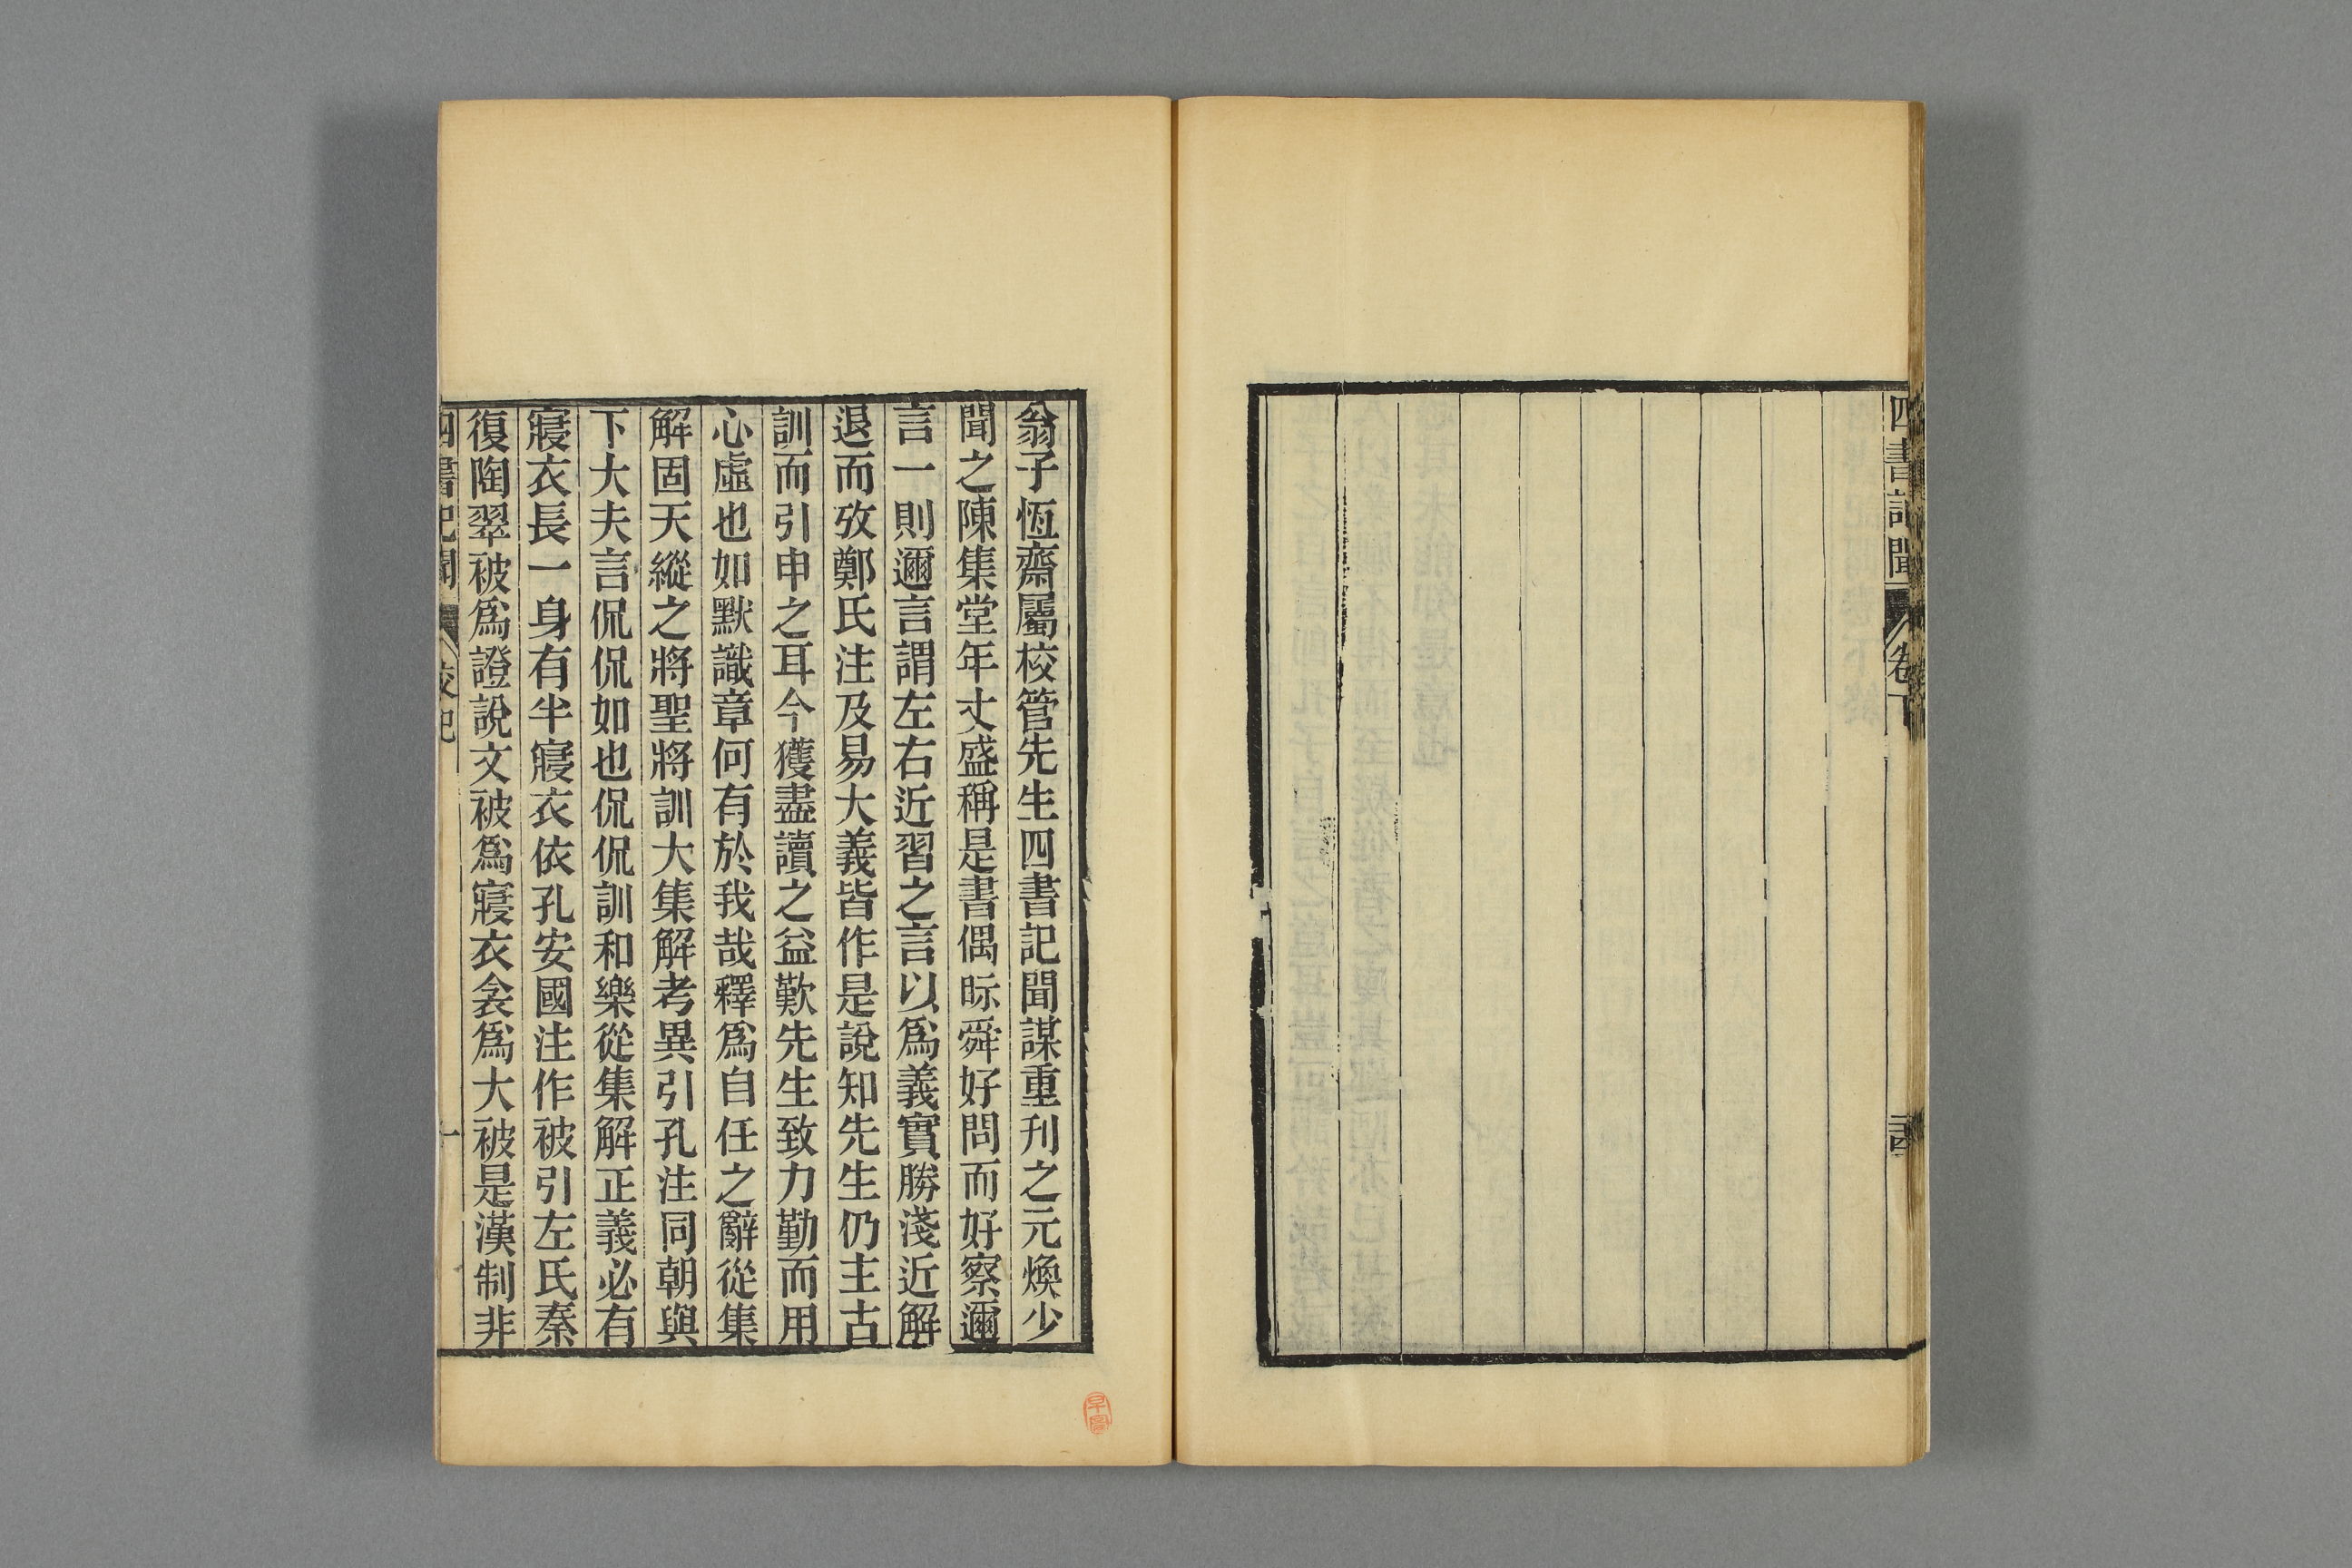 四書記聞
卷下
翁子恆齋屬校管先生四書記聞謀重刊之元煥少
聞之陳集堂年丈盛稱是書偶眎舜好問而好察邇
言一則邇言謂左右近習之言以爲義實勝淺近解
退而攷鄭氏注及易大義皆作是說知先生仍主古
訓而引申之耳今獲盡讀之益歎先生致力勤而用
心虛也如默識章何有於我哉釋爲自任之辭從集
解固天縱之將聖將訓大集解考異引孔注同朝與
下大夫言侃侃如也侃侃訓和樂從集解正義必有
寢衣長一身有半寢衣依孔安國注作被引左氏秦
復陶翠被爲證說文被爲寢衣衾爲大被是漢制非
四書記聞
校記
一